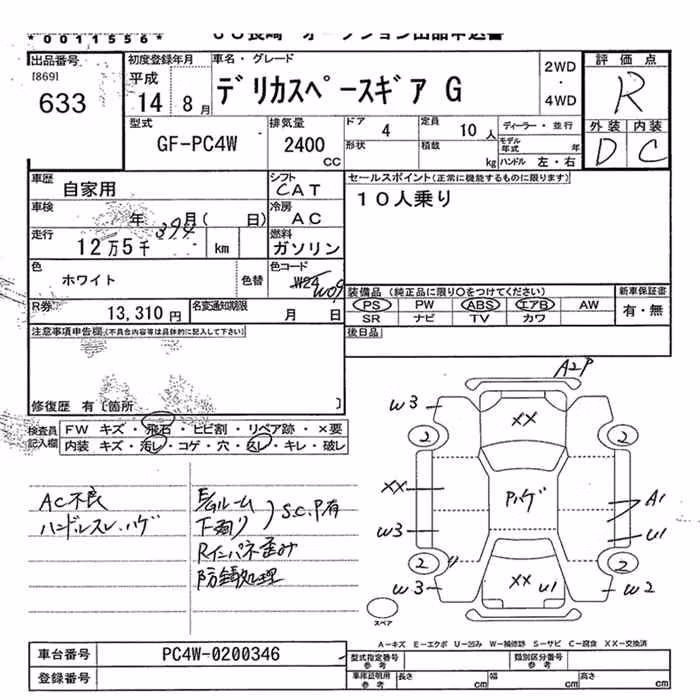 * 0011556 *
出品番号
[869]
633
初度登録年月
平成
14 8 月
車名・グレード
デリカスペースギア G
2WD
・
4WD
評価点
R
外装 内装
D C
型式
GF-PC4W
排気量
2400
CC
ドア 4
定員 10 人
ディーラー・並行
形状
積載 kg
モデル年式 年
ハンドル 左・右
車歴 自家用
シフト CAT
セールスポイント(正常に機能するものに限ります)
10人乗り
車検 年 月( 日)
394
冷房 AC
走行 12万5千 km
燃料 ガソリン
色 ホワイト 色替
色コード W24 W09
装備品(純正品に限り○をつけてください)
新車保証書
PS PW ABS エアB AW
有・無
SR ナビ TV カワ
R券 13,310 円
名変通知期限 月 日
後日品
注意事項申告欄(不具合内容等は具体的に記入して下さい)
修復歴 有〔箇所 〕
検査員記入欄
FW キズ・飛石・ヒビ割・リペア跡・×要
内装 キズ・汚レ・コゲ・穴・スレ・キレ・破レ
AC不良
ハンドルスレ、ハゲ
E/Gルーム
下廻り
S.C.P有
Rインパネ歪み
防錆処理
A2P
W3
XX
2
2
XX
Pハゲ
A1
W3
U1
2
U
2
W3
XX U1
W2
スペア
A-キズ E-エクボ U-凹み W-補修跡 S-サビ C-腐食 XX-交換済
車台番号 PC4W-0200346
型式指定番号 参考
類別区分番号 参考
登録番号
車庫証明用 参考
長さ cm
幅 cm
高さ cm